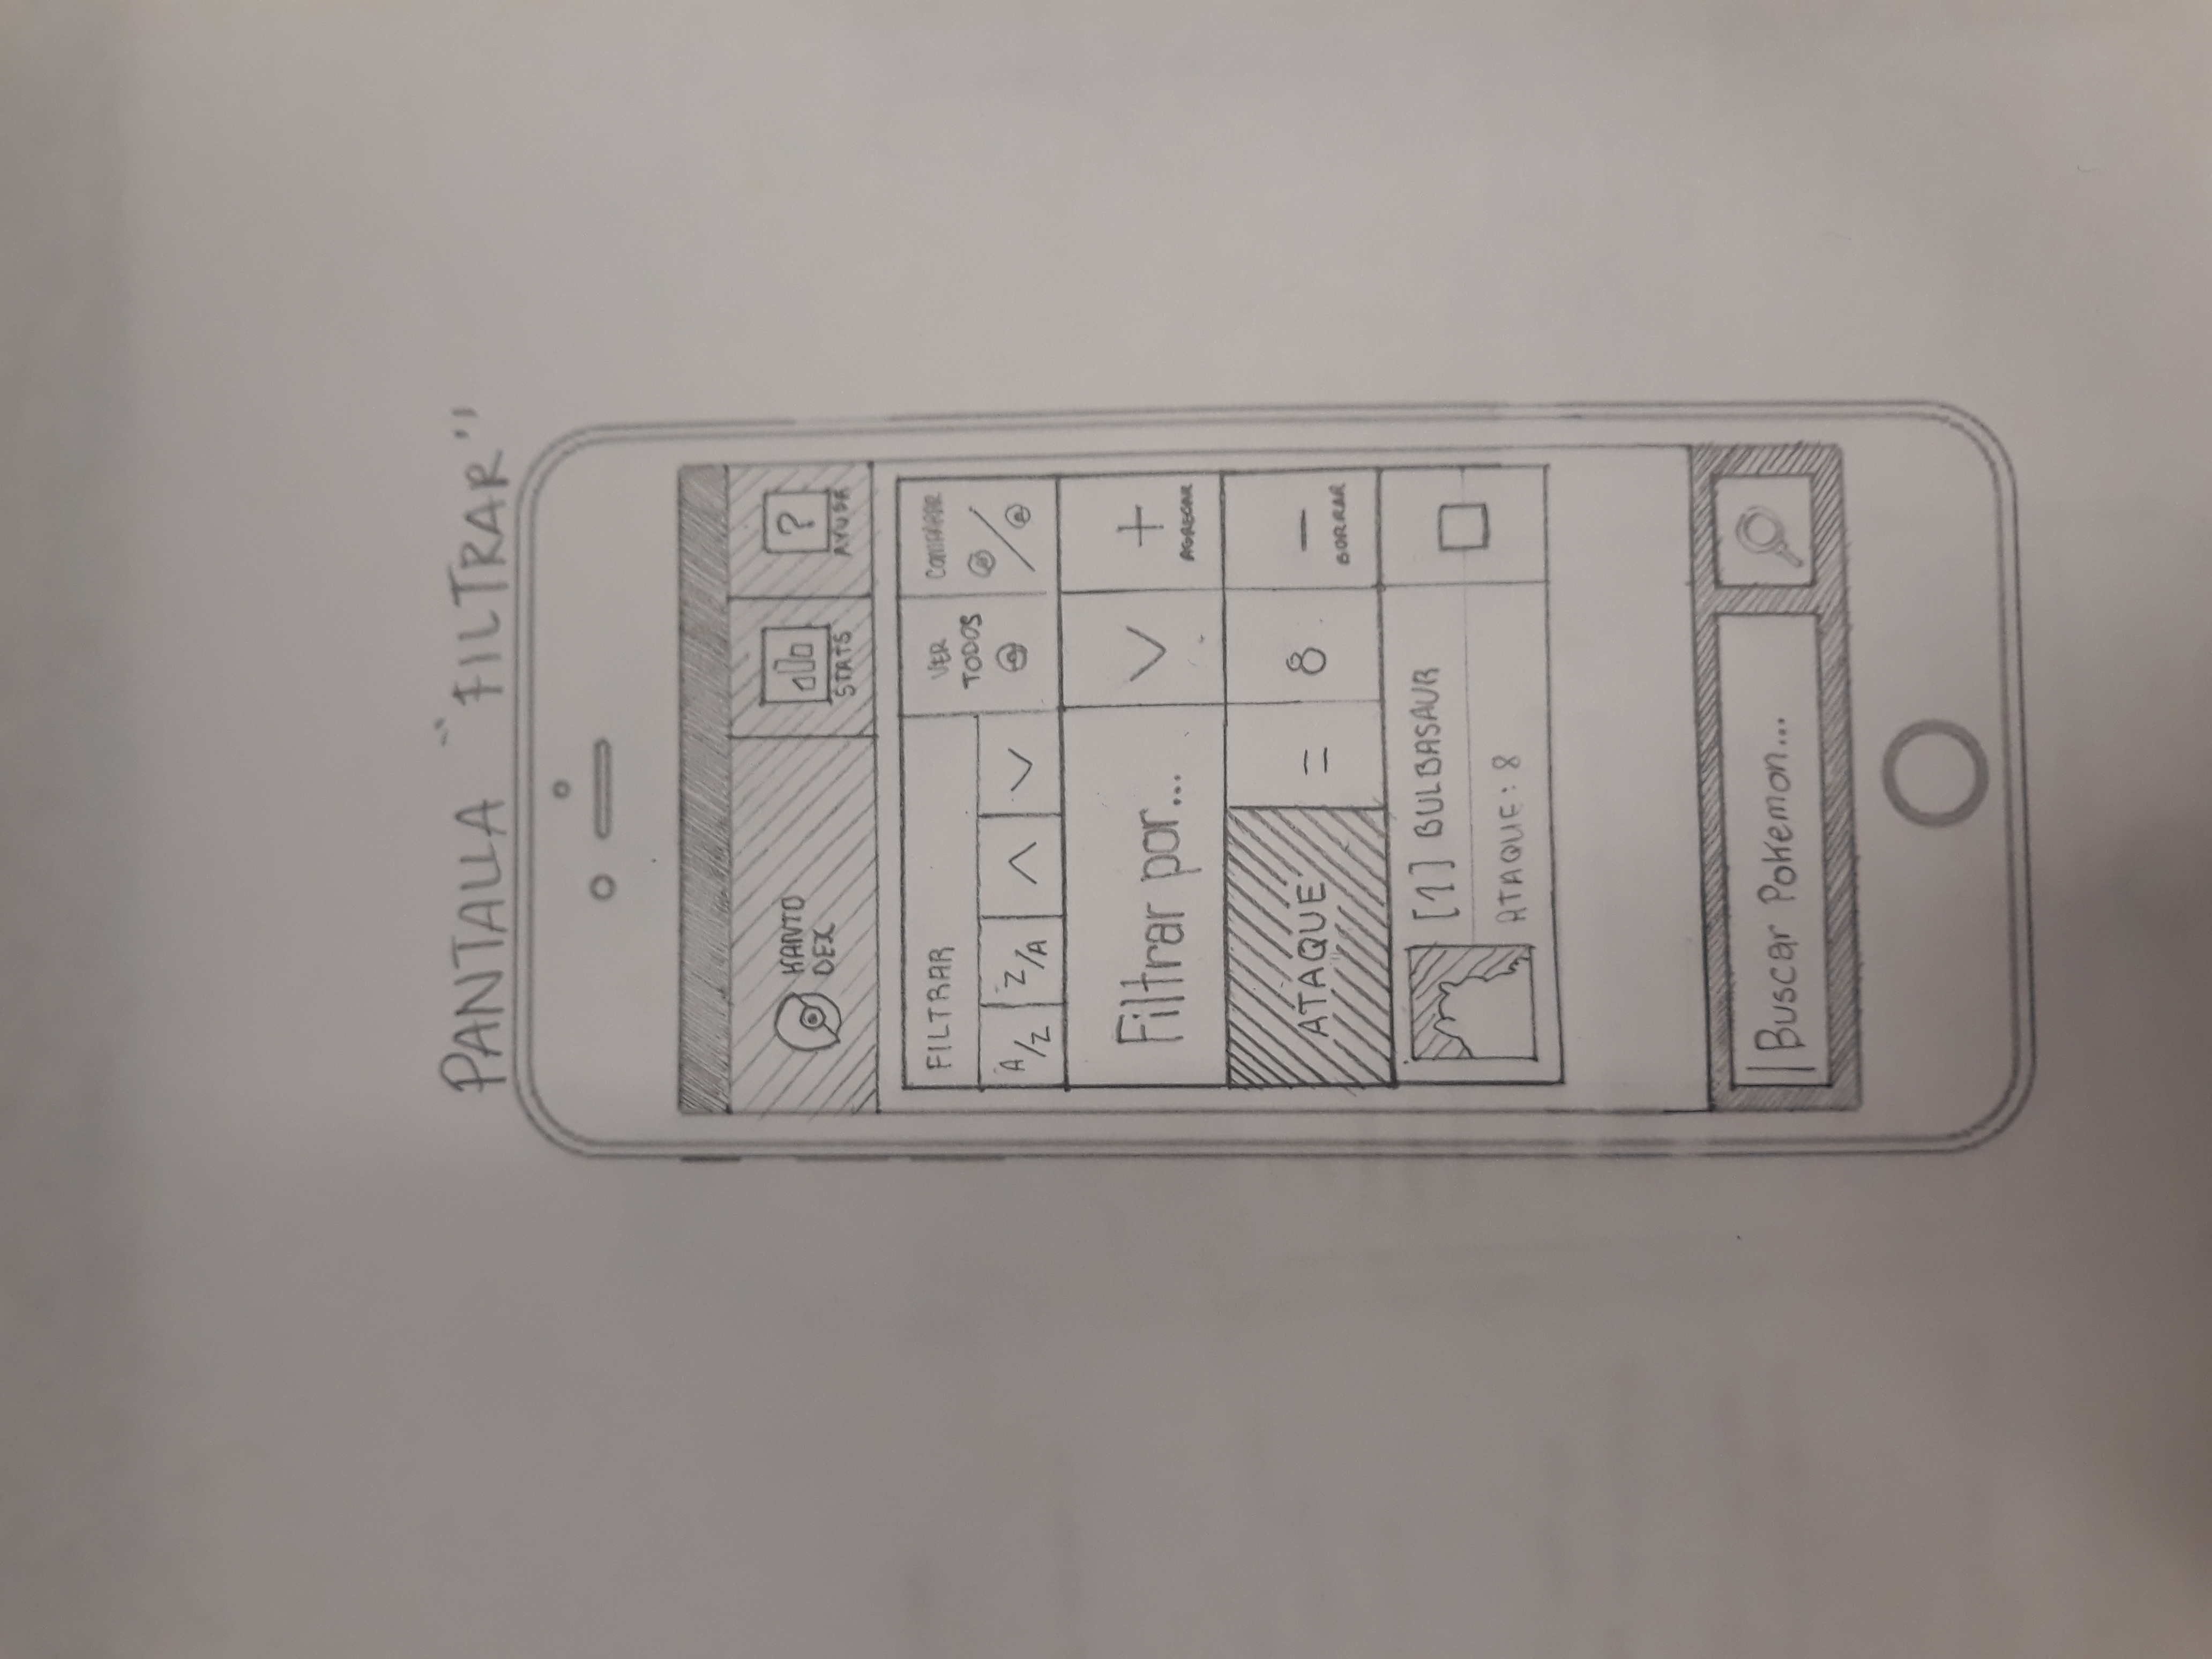 PANTALLA "FILTRAR"
KANTO
DEX
STATS
?
AYUDA
FILTRAR
VER
TODOS
COMPARAR
A/Z
Z/A
Filtrar por...
+
AGREGAR
ATAQUE
=
8
−
BORRAR
[1] BULBASAUR
ATAQUE: 8
Buscar Pokemon...